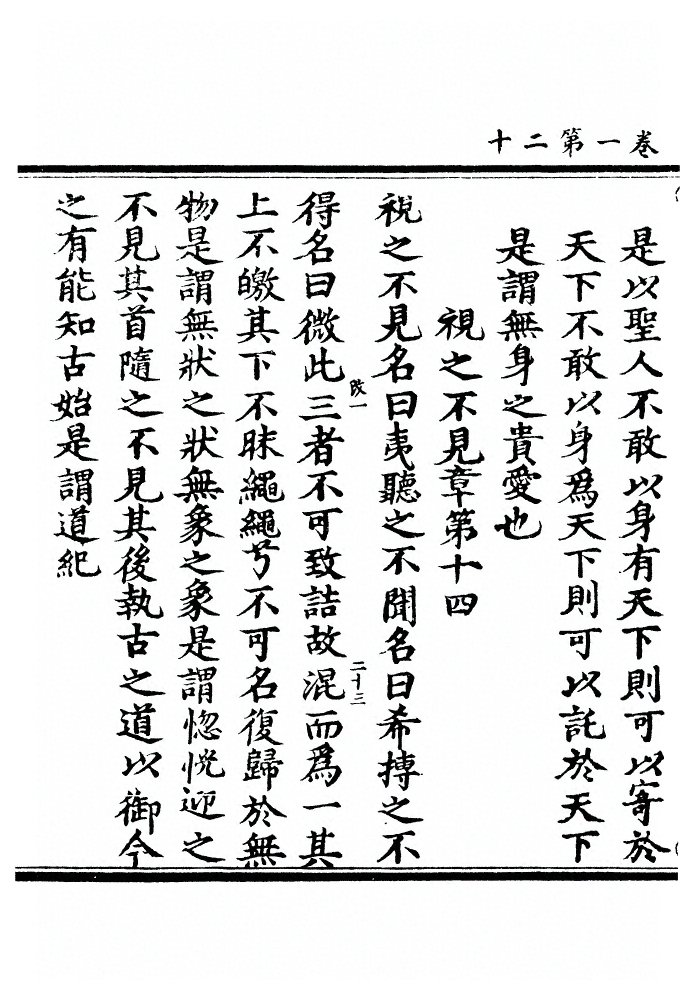 卷一第二十
是以聖人不敢以身有天下則可以寄於
天下不敢以身爲天下則可以託於天下
是謂無身之貴愛也
視之不見章第十四
視之不見名曰夷聽之不聞名曰希搏之不
改一
二十三
得名曰微此三者不可致詰故混而爲一其
上不皦其下不昧繩繩兮不可名復歸於無
物是謂無狀之狀無象之象是謂惚怳迎之
不見其首隨之不見其後執古之道以御今
之有能知古始是謂道紀